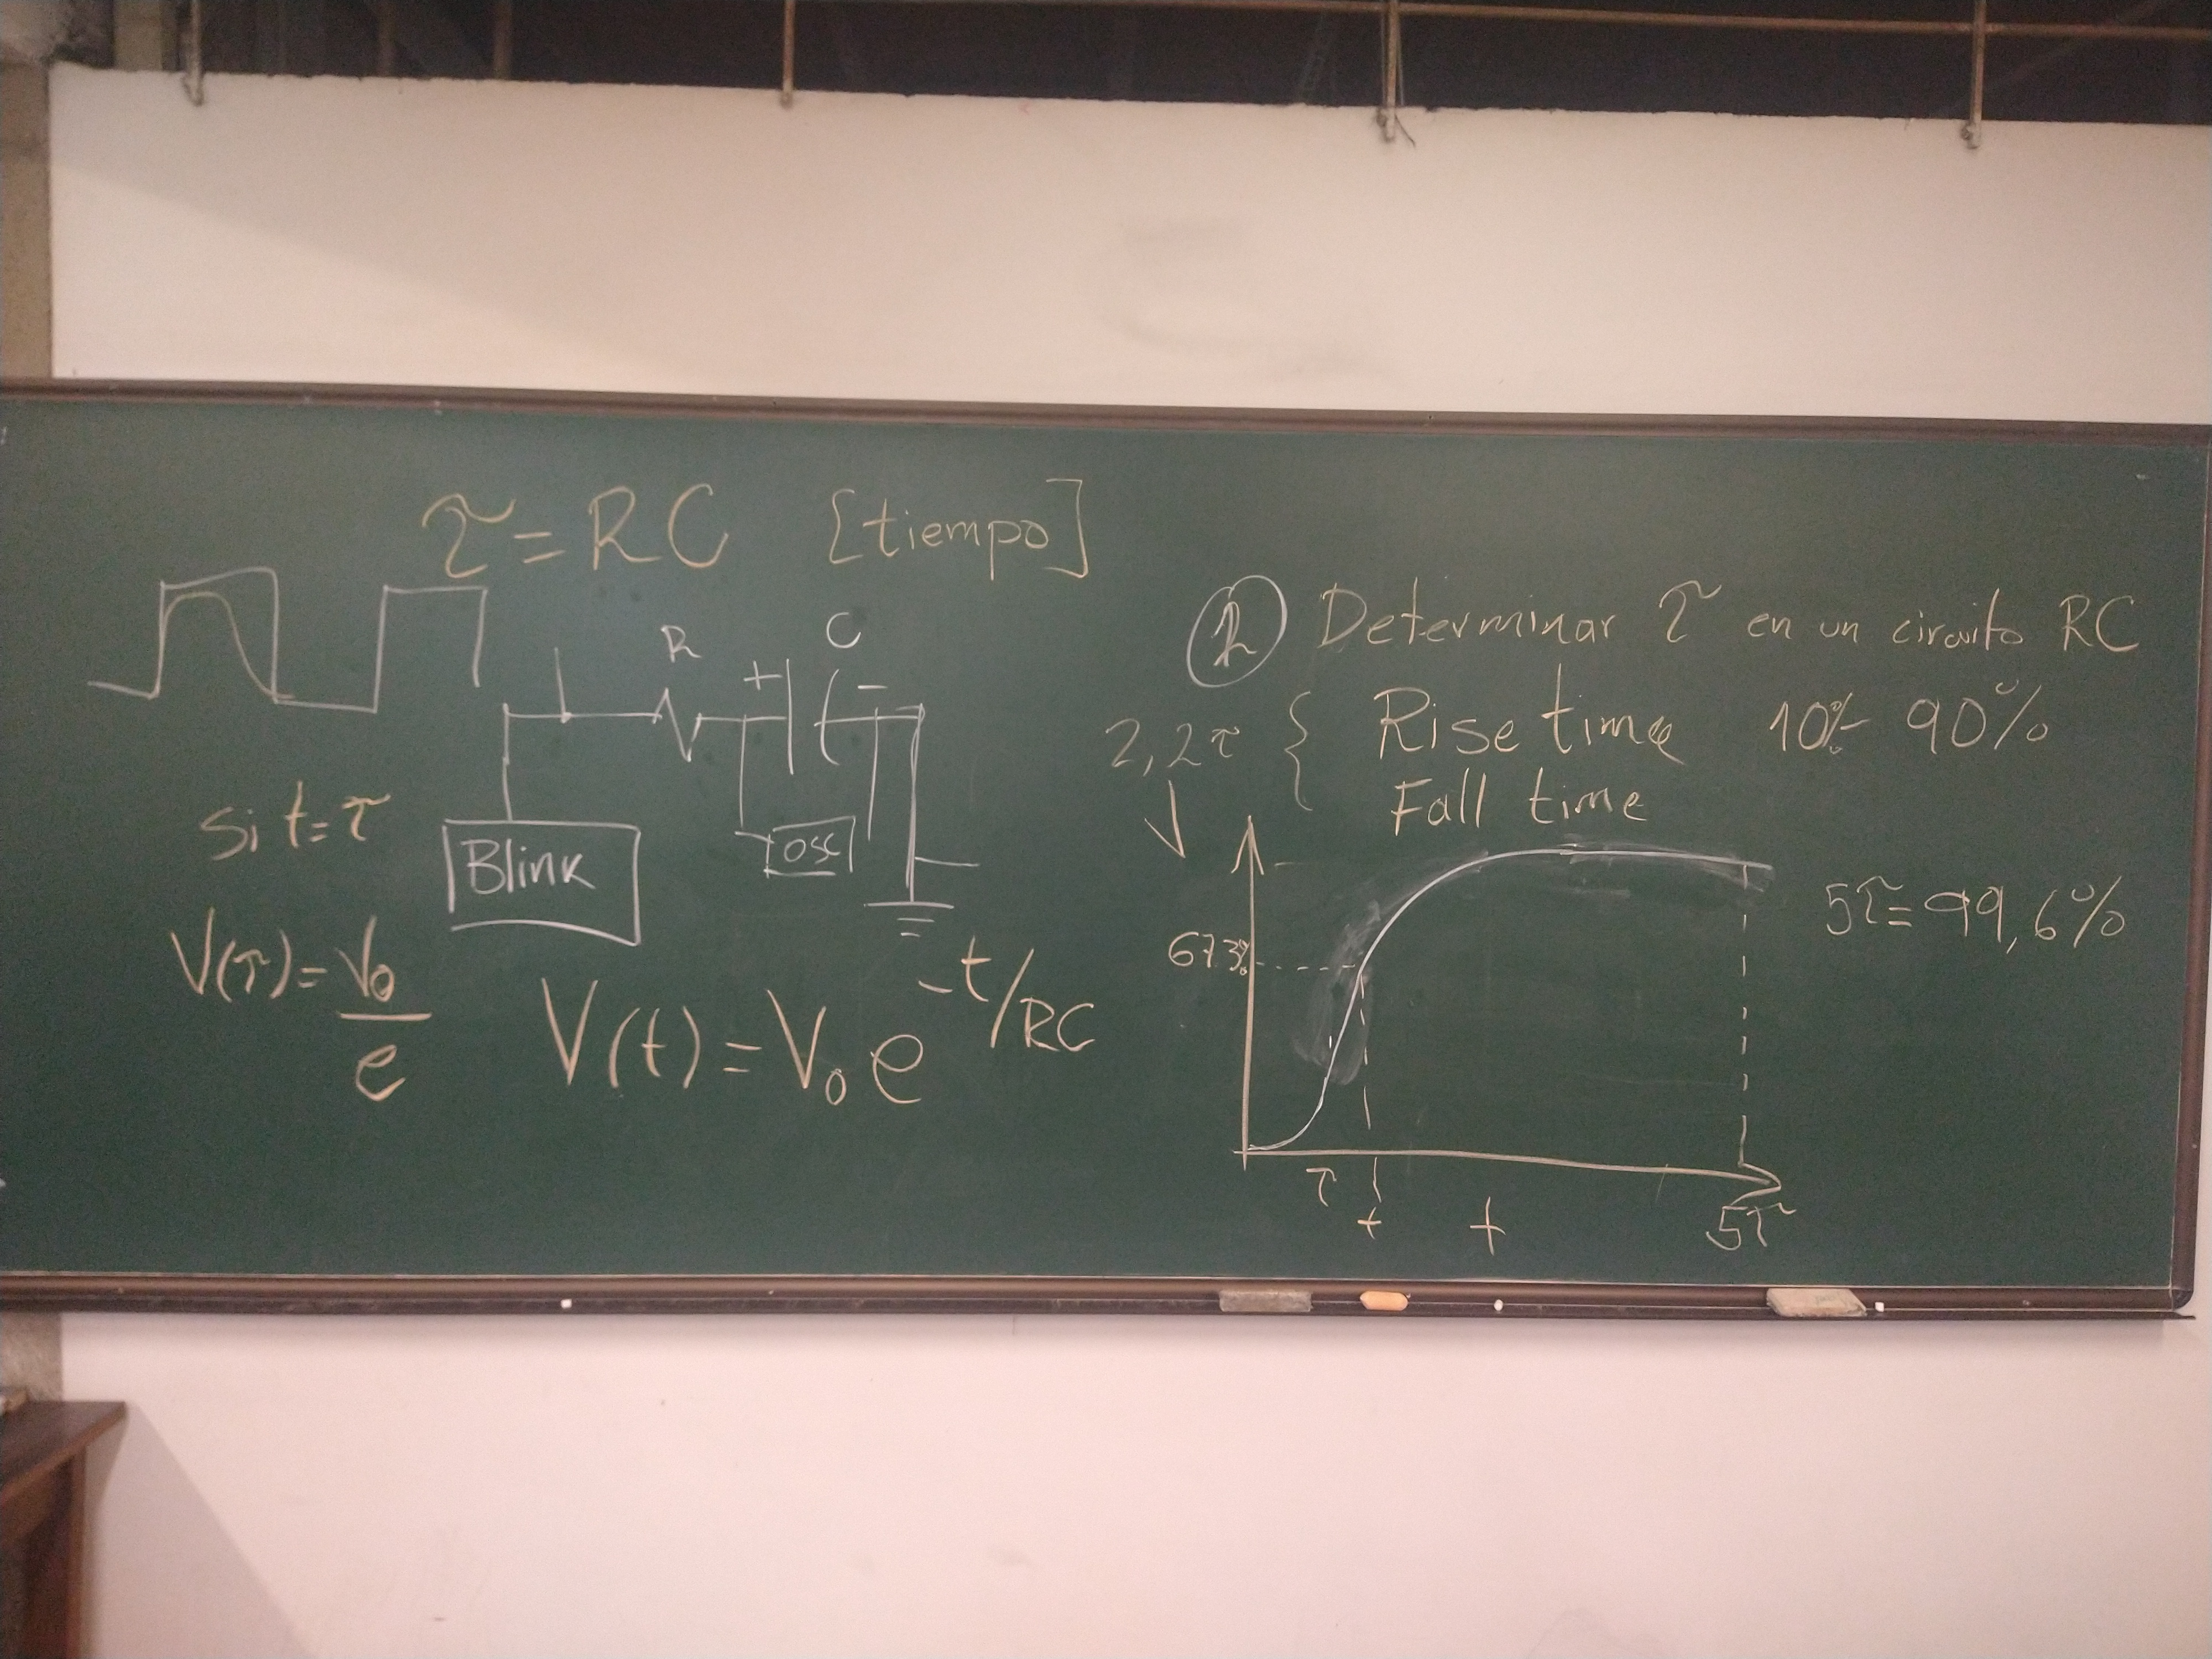 τ = RC [tiempo]
R
C
+
-
Blink
OSC
Si t = τ
V(τ) = V₀/e
V(t) = V₀ e^(-t/RC)
Determinar τ en un circuito RC
2,2τ { Rise time 10% - 90%
Fall time
V
67.3%
5τ = 99,6%
τ
t
t
5τ